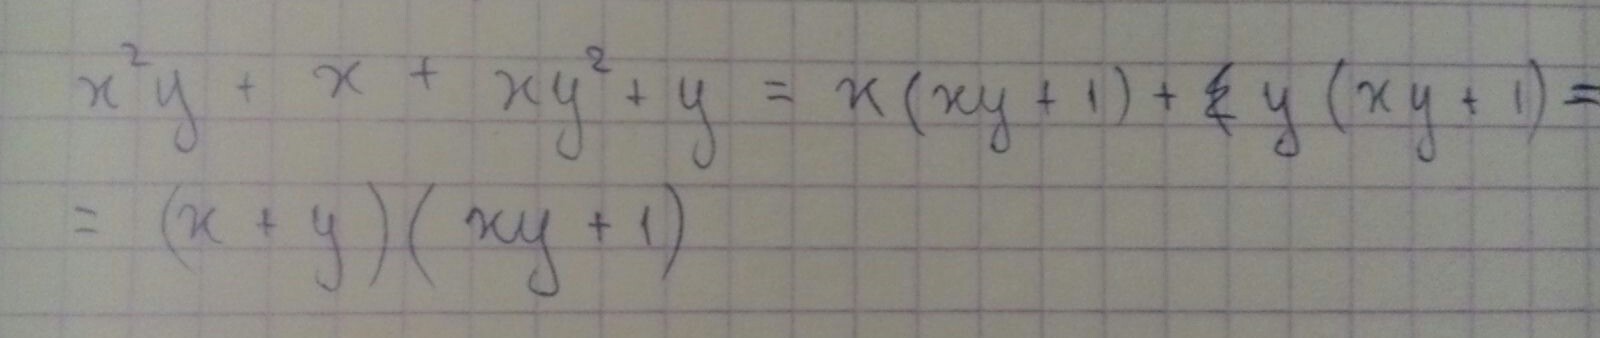 x²y + x + xy² + y = x(xy + 1) + y(xy + 1) =
= (x + y)(xy + 1)